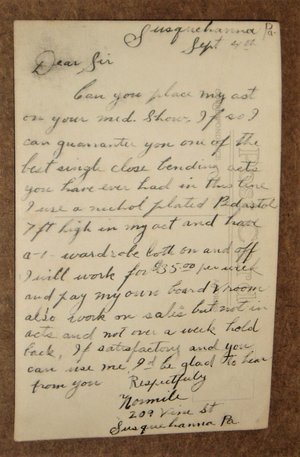 Susquehanna Pa.
Sept 4th
Dear Sir
Can you place my act
on your mid. Show. If so I
can guarantee you one of the
best single close bending acts
you have ever had in this line
I use a nichol plated Pedastol
7 ft high in my act and have
a-1- wardrobe both on and off
I will work for $35.00 per week
and pay my own board & room
also work on sales but not in
acts and not over a week hold
back, If satisfactory and you
can use me, I'd be glad to hear
from you Respectfuly
Normile
209 Vine St
Susquehanna Pa